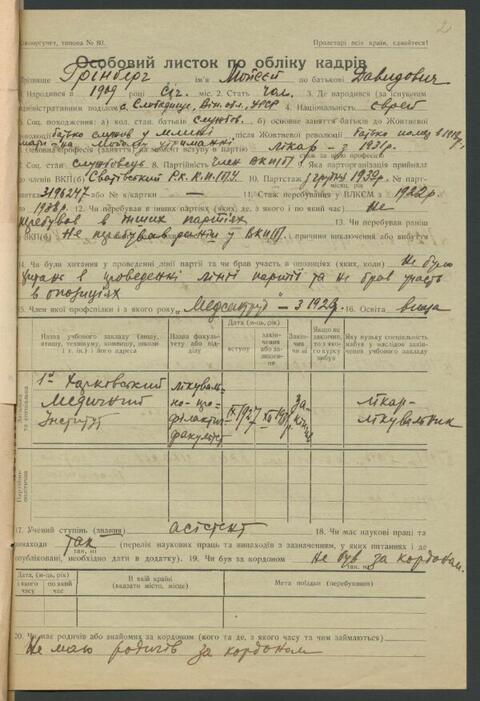 2
типова № 80.
Пролетарі всіх країн, єднайтеся!
Особовий листок по обліку кадрів
Прізвище Грінберг ім'я Мойсей по батькові Давидович
1. Народився в 1909 році Січ. міс. 2. Стать чол. 3. Де народився (за існуючим
адміністративним поділом) с. Слободище, Він. обл., УРСР 4. Національність єврей
5. Соц. походження: а) кол. стан батьків службов. б) основне заняття батьків до Жовтневої
революції батько служив у млині після Жовтневої революції батько помер в 1918 р.
мати - на моєму утриманні
6. Основна професія (заняття) на момент вступу в партію лікар - з 1931 р.
стаж за цією професією
7. Соц. стан службовець 8. Партійність член ВКП(б) Яка парторганізація прийняла
в члени ВКП(б) РК КП(б)У 10. Партстаж з грудня 1939 р.
міс., рік
3196247 або № к/картки — 11. Стаж перебування у ВЛКСМ з 1922 р.
по 1928 р. 12. Чи перебував в інших партіях (яких, де, з якого і по який час) Не
перебував в інших партіях 13. Чи перебував раніш
у ВКП(б) Не перебував раніш у ВКП(б) і причини виключення або вибуття
14. Чи були хитання у проведенні лінії партії та чи брав участь в опозиціях (яких, коли) Не було
хитань в проведенні лінії партії та не брав участь
в опозиціях
15. Член якої профспілки і з якого року „Медсантруд" - з 1929 р. 16. Освіта вища
Назва учбового закладу (вищу, втишу, технікуму, комвишу, школи і т. ін.) і його адреса
Назва факультету або відділу
Дата (м-ць, рік)
вступу
закінчення або залишення
Закінчив чи ні
Якщо не закінчив, то з якого курсу вибув
Яку вузьку спеціальність набув у наслідок закінчення учбового закладу
1й Харківський
Медичний
Інститут
лікуваль-
но-про-
філактич-
факультет
IX 1927
За-
кінчив
лікар-
лікувальник
17. Учений ступінь (звання) асистент 18. Чи має наукові праці та
винаходи так (перелік наукових праць та винаходів з зазначенням, у яких питаннях і де
так, ні
опубліковані, необхідно дати в додатку). 19. Чи був за кордоном Не був за кордоном.
так, ні
Дата, (м-ць, рік)
з якого часу
по який час
В якій країні
(вказати місто, місце)
Мета поїздки (перебування)
20. Чи має родичів або знайомих за кордоном (кого та де, з якого часу та чим займаються)
Не маю родичів за кордоном